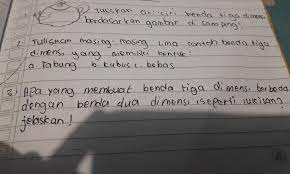 1. Tuliskan ciri-ciri benda tiga dimensi
berdasarkan gambar di samping!
2. Tuliskan masing-masing lima contoh benda tiga
dimensi, yang memiliki bentuk:
a. Tabung b. kubus c. bebas
3. Apa yang membuat benda tiga dimensi berbeda
dengan benda dua dimensi (seperti lukisan)?
jelaskan!